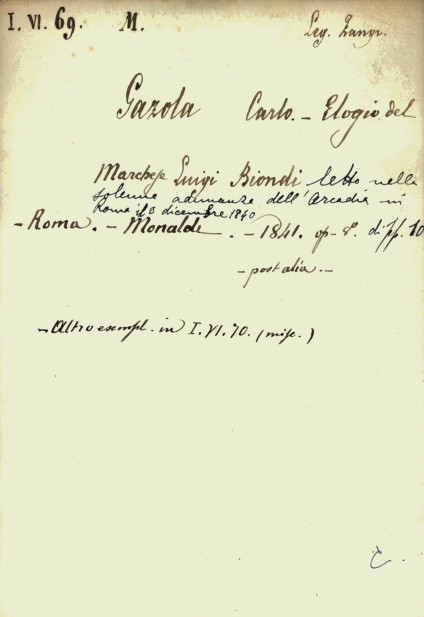 I. VI. 69. M. Leg. Zangr.
Gazola Carlo. - Elogio del
Marchese Luigi Biondi letto nella
solenne adunanza dell'Arcadia in
Roma il 3 dicembre 1840
- Roma. - Monaldi. - 1841. op. 8°. di pp. 20
- post alia. -
- Altro esempl. in I. VI. 70. (misc.)